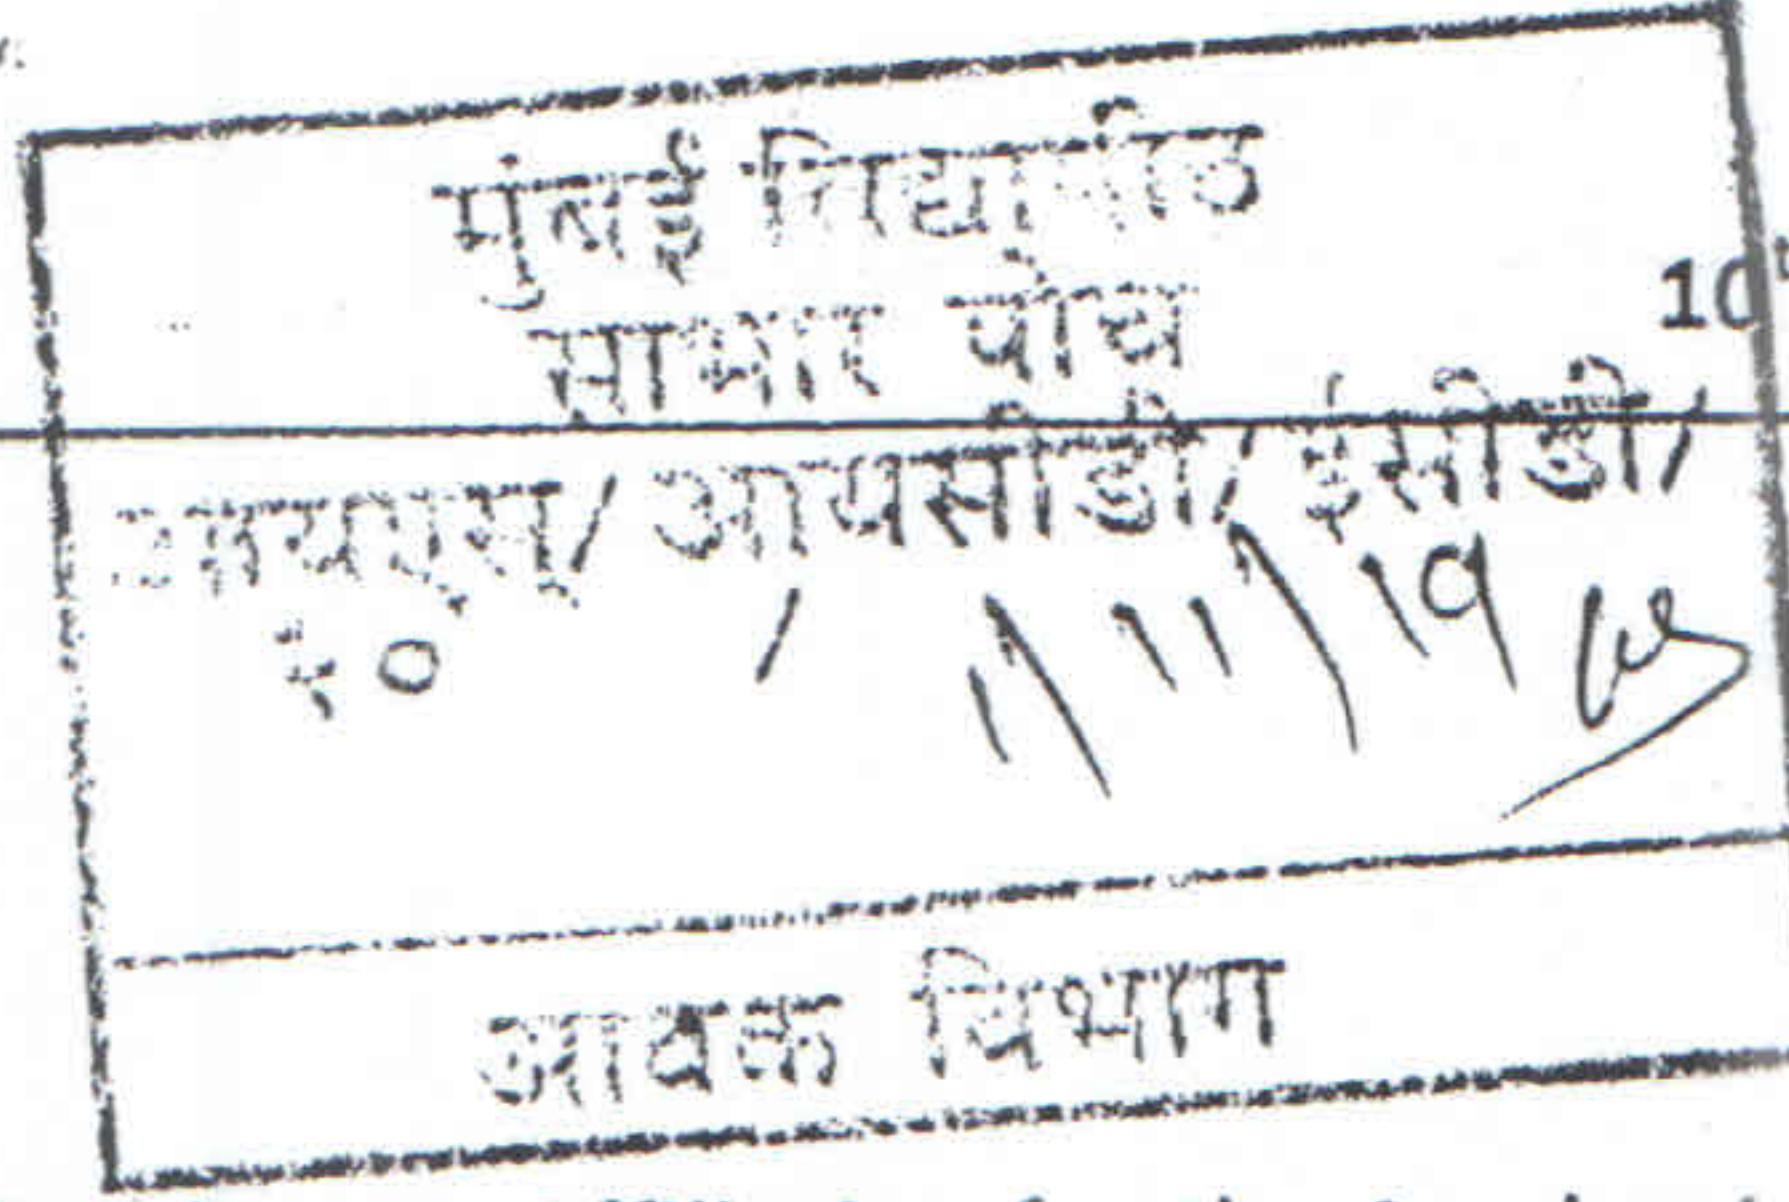 मुंबई विद्यापीठ
साभार पोच
10
आयसीडी/ ईसीडी/
२० / 11/11/19
आवक विभाग